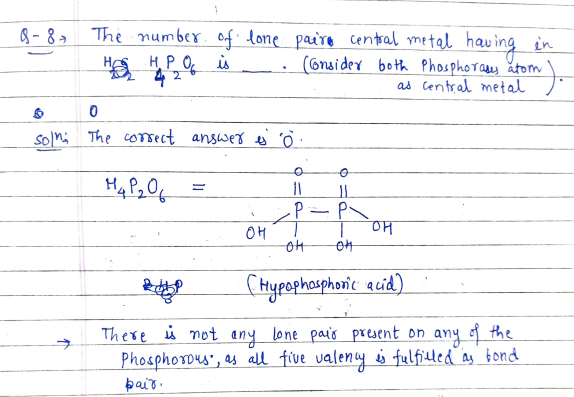 Q-8→ The number of lone pairs central metal having in
H₄P₂O₆ is ___. (Consider both Phosphorous atom as central metal).
0
Soln: The correct answer is '0'.
H₄P₂O₆ =
O O
|| ||
P — P
OH OH
OH OH
(Hypophosphoric acid)
→ There is not any lone pair present on any of the
Phosphorous, as all five valency is fulfilled as bond
pair.